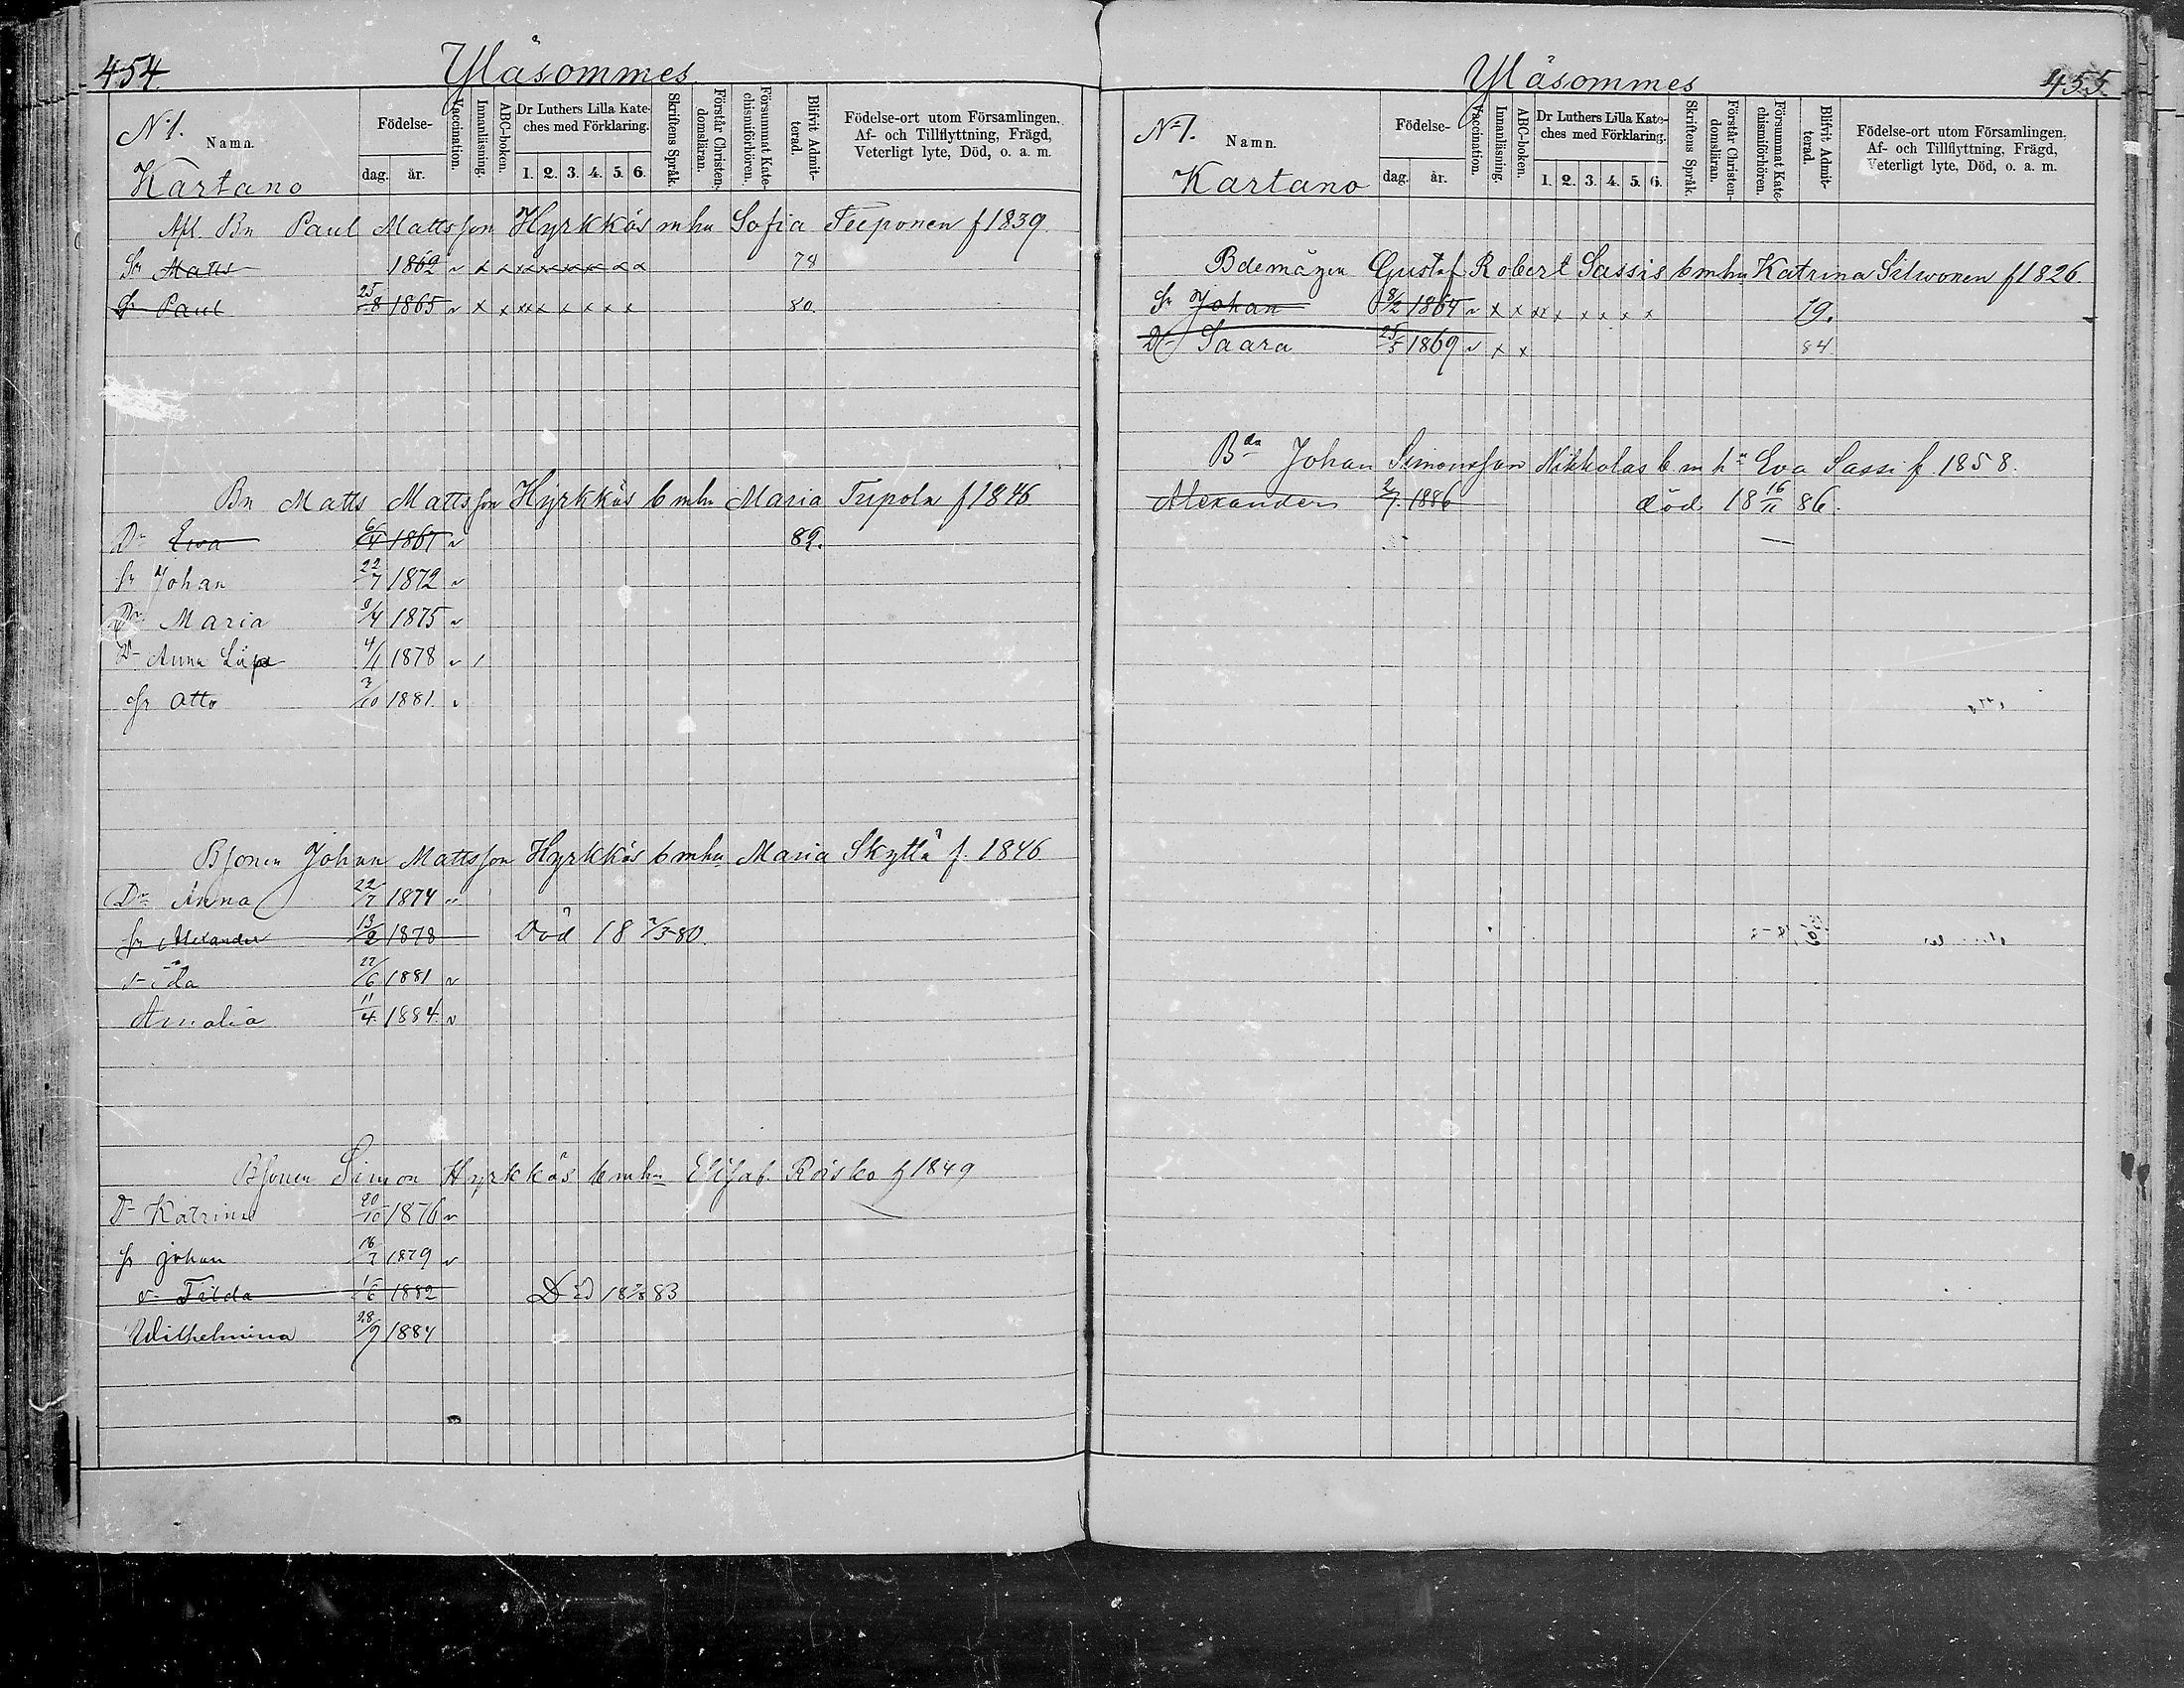 454.
Yläsommes
N:1.
Namn.
Kartano
Födelse-
dag.
år.
Vaccination.
Innanläsning.
ABC-boken.
Dr Luthers Lilla Kate-
ches med Förklaring.
1. 2. 3. 4. 5. 6.
Skriftens Språk.
Förstår Christen-
domsläran.
Försummat Kate-
chismiförhören.
Blifvit Admit-
terad.
Födelse-ort utom Församlingen.
Af- och Tillflyttning, Frägd,
Veterligt lyte, Död, o. a. m.
Bn Paul Mattsson Hyrkkäs mhu Sofia Teeponen f 1839
Sr Matts 1862 v x x x x x x x x x x 78
Sr Paul 25/8 1865 v x x xx x x x x x x 80.
Bn Matts Mattsson Hyrkkäs b mhu Maria Tupola f 1846
Dr Ewa 6/4 1867 v 82.
Sr Johan 22/7 1872 v
Dr Maria 9/4 1875 v
Dr Anna Lisa 4/1 1878 v /
Sr Otto 3/10 1881 v
Bsonen Johan Mattsson Hyrkkäs b mhu Maria Skyttä f. 1846
Dr Anna 22/7 1874 v
Sr Alexander 13/2 1878 Död 18 2/3 80.
Dr Ida 22/6 1881 v
Amalia 11/4 1884. v
Bsonen Simon Hyrkkäs b mhu Elisab. Roisko f 1849
Dr Katrina 20/10 1876 v
Sr Johan 16/7 1879 v
Dr Tilda 1/6 1882 Död 18 2/8 83
Wilhelmina 28/9 1884
Yläsommes
455.
N:1.
Namn.
Kartano
Födelse-
dag.
år.
Vaccination.
Innanläsning.
ABC-boken.
Dr Luthers Lilla Kate-
ches med Förklaring.
1. 2. 3. 4. 5. 6.
Skriftens Språk.
Förstår Christen-
domsläran.
Försummat Kate-
chismiförhören.
Blifvit Admit-
terad.
Födelse-ort utom Församlingen.
Af- och Tillflyttning, Frägd,
Veterligt lyte, Död, o. a. m.
Bdemågen Gustaf Robert Sassis b mhu Katrina Silwonen f 1826.
Sr Johan 8/2 1864 v x x xx x x x x x x 79.
Dr Saara 25/5 1869 v x x 84
Bdn Johan Simonsson Nikkolas b m hu Eva Sassi f. 1858.
Alexander 2/7. 1886 död 18 16/11 86.